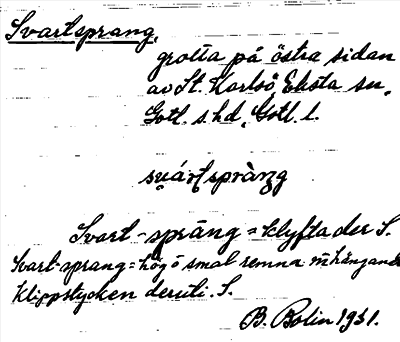 Svartsprang,
grotta på östra sidan
av St. Karlsö, Eksta sn,
Gotl. s. hd, Gotl. l.
su̯ártspràŋg
Svart-språng = klyfta der S.
Svart-sprang = hög ö smal remna m hängande
Klippstycken deruti. S.
B. Bolin 1931.